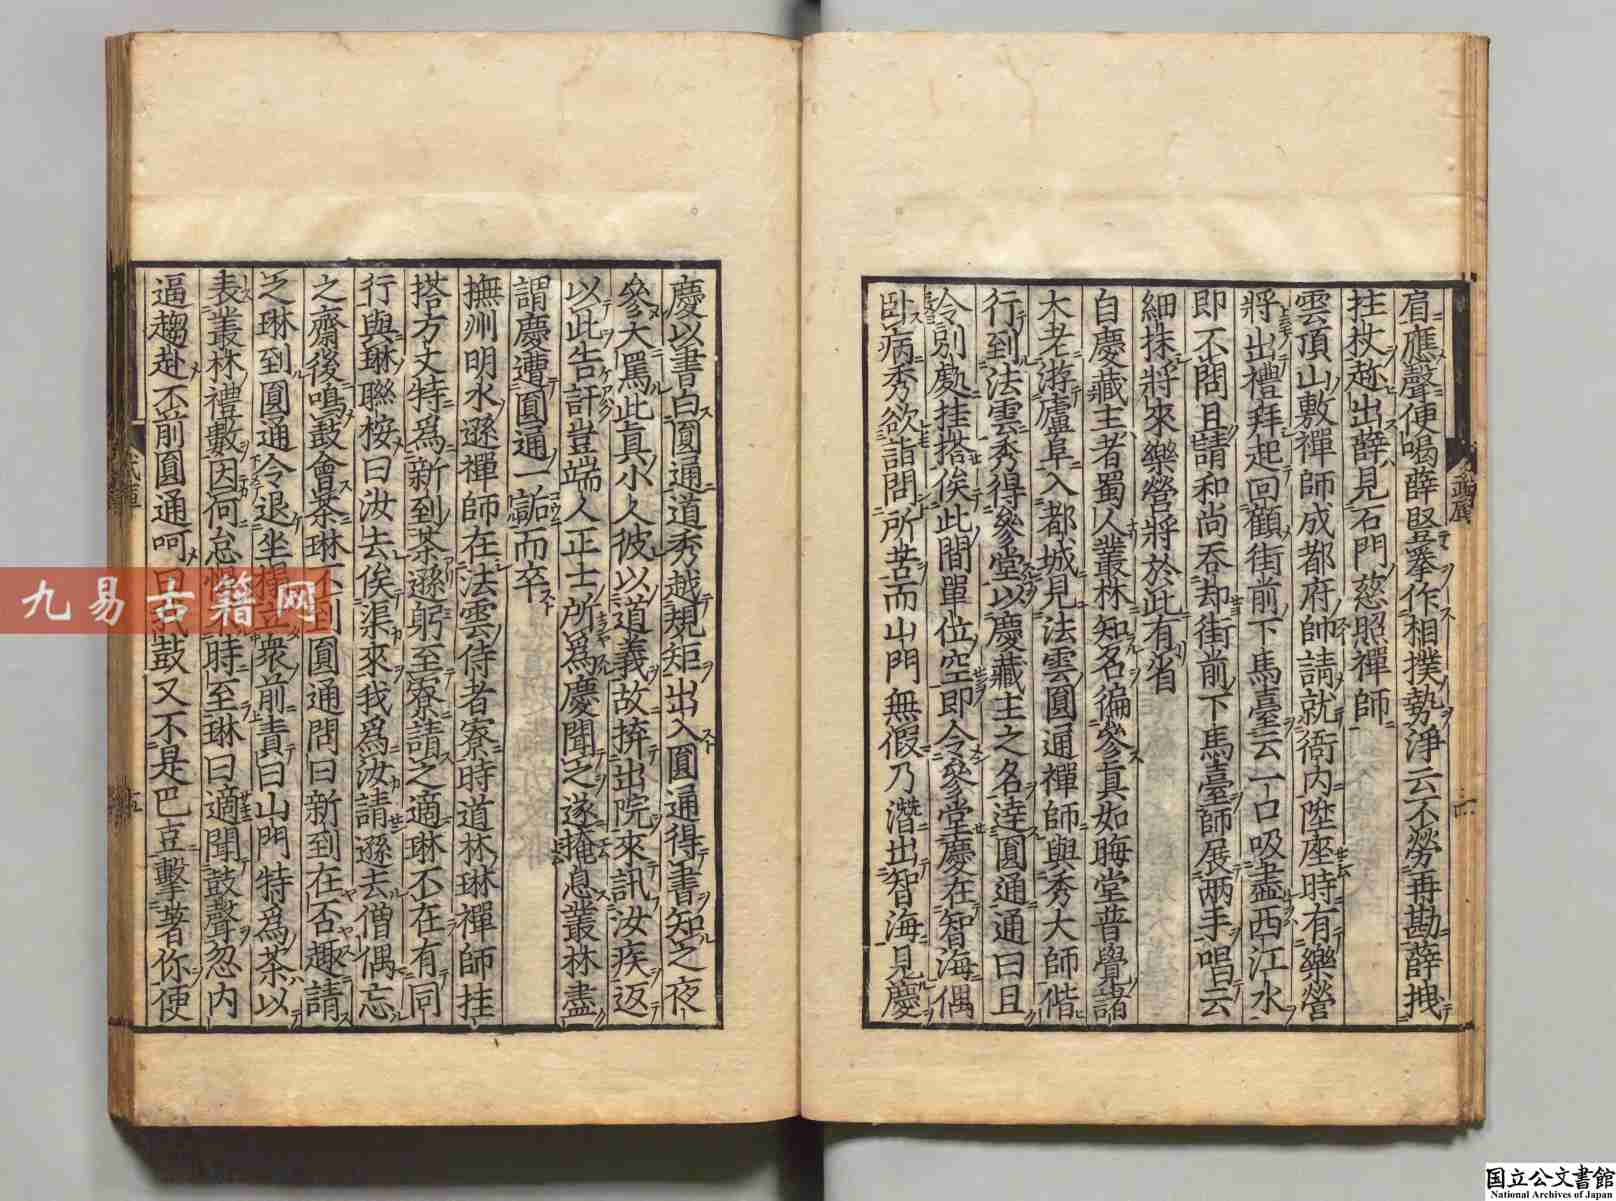 肩應聲便喝薛竪拳作相撲勢淨云不勞再勘薛拽
拄杖趂出薛見石門慈照禪師
雲頂山敷禪師成都府帥請就衙内陞座時有樂營
將出禮拜起回顧街前下馬臺云一口吸盡西江水
即不問且請和尚吞却街前下馬臺師展兩手唱云
細抹將來樂營將於此有省
自慶藏主者蜀人叢林知名徧參真如晦堂普覺諸
大老游廬阜入都城見法雲圓通禪師與秀大師偕
行到法雲秀得參堂以慶藏主之名達圓通通曰且
令別處挂搭俟此間單位空即令參堂慶在智海偶
卧病秀欲詣問所苦而山門無假乃潛出智海見慶
慶以書白圓通道秀越規矩出入圓通得書知之夜
參大罵此真小人彼以道義故拚出院來訊汝疾返
以此告訐豈端人正士所爲慶聞之遂掩息叢林盡
謂慶遭圓通一詬而卒
撫州明水遜禪師在法雲侍者寮時道林琳禪師挂
搭方丈特爲新到茶遜躬至寮請之適琳不在有同
行與琳聯桉曰汝去俟渠來我爲汝請遜去僧偶忘
之齋後鳴鼓會茶琳不到圓通問曰新到在否趣請
之琳到圓通令退坐榻立衆前責曰山門特爲茶以
表叢林禮數因何怠時至琳曰適聞鼓聲忽内
逼趨赴不前圓通呵曰鼓又不是巴豆擊著你便
九易古籍网
国立公文書館
National Archives of Japan